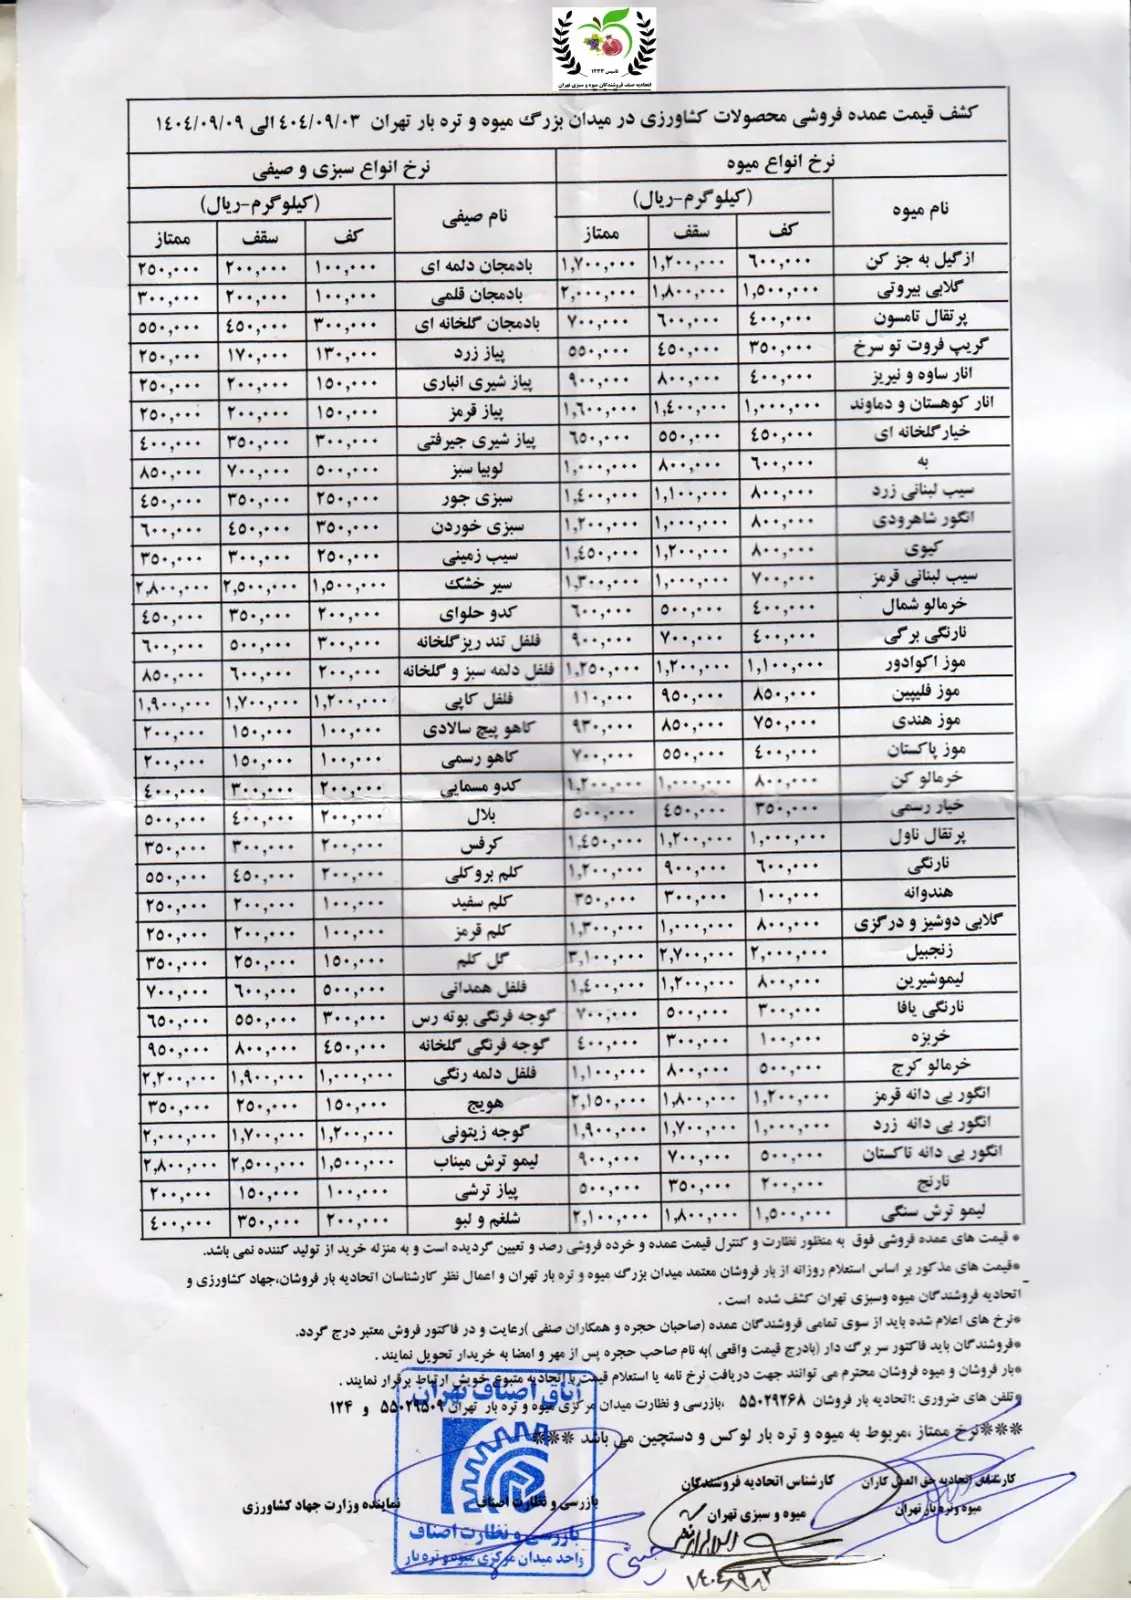 تاسیس ۱۳۳۳
اتحادیه صنف فروشندگان میوه و سبزی تهران
کشف قیمت عمده فروشی محصولات کشاورزی در میدان بزرگ میوه و تره بار تهران ۴۰۴/۰۹/۰۳ الی ۱۴۰۴/۰۹/۰۹
نرخ انواع میوه نرخ انواع سبزی و صیفی
نام میوه (کیلوگرم-ریال) نام صیفی (کیلوگرم-ریال)
کف سقف ممتاز کف سقف ممتاز
ازگیل به جز کن ۶۰۰,۰۰۰ ۱,۲۰۰,۰۰۰ ۱,۷۰۰,۰۰۰ بادمجان دلمه ای ۱۰۰,۰۰۰ ۲۰۰,۰۰۰ ۲۵۰,۰۰۰
گلابی بیروتی ۱,۵۰۰,۰۰۰ ۱,۸۰۰,۰۰۰ ۲,۰۰۰,۰۰۰ بادمجان قلمی ۱۰۰,۰۰۰ ۲۰۰,۰۰۰ ۳۰۰,۰۰۰
پرتقال تامسون ۴۰۰,۰۰۰ ۶۰۰,۰۰۰ ۷۰۰,۰۰۰ بادمجان گلخانه ای ۳۰۰,۰۰۰ ۴۵۰,۰۰۰ ۵۵۰,۰۰۰
گریپ فروت تو سرخ ۳۵۰,۰۰۰ ۴۵۰,۰۰۰ ۵۵۰,۰۰۰ پیاز زرد ۱۳۰,۰۰۰ ۱۷۰,۰۰۰ ۲۵۰,۰۰۰
انار ساوه و نیریز ۴۰۰,۰۰۰ ۸۰۰,۰۰۰ ۹۰۰,۰۰۰ پیاز شیری انباری ۱۵۰,۰۰۰ ۲۰۰,۰۰۰ ۲۵۰,۰۰۰
انار کوهستان و دماوند ۱,۰۰۰,۰۰۰ ۱,۴۰۰,۰۰۰ ۱,۶۰۰,۰۰۰ پیاز قرمز ۱۵۰,۰۰۰ ۲۰۰,۰۰۰ ۲۵۰,۰۰۰
خیارگلخانه ای ۴۵۰,۰۰۰ ۵۵۰,۰۰۰ ۶۵۰,۰۰۰ پیاز شیری جیرفتی ۳۰۰,۰۰۰ ۳۵۰,۰۰۰ ۴۰۰,۰۰۰
به ۶۰۰,۰۰۰ ۸۰۰,۰۰۰ ۱,۰۰۰,۰۰۰ لوبیا سبز ۵۰۰,۰۰۰ ۷۰۰,۰۰۰ ۸۵۰,۰۰۰
سیب لبنانی زرد ۸۰۰,۰۰۰ ۱,۱۰۰,۰۰۰ ۱,۴۰۰,۰۰۰ سبزی جور ۲۵۰,۰۰۰ ۳۵۰,۰۰۰ ۴۵۰,۰۰۰
انگور شاهرودی ۸۰۰,۰۰۰ ۱,۰۰۰,۰۰۰ ۱,۲۰۰,۰۰۰ سبزی خوردن ۳۵۰,۰۰۰ ۴۵۰,۰۰۰ ۶۰۰,۰۰۰
کیوی ۸۰۰,۰۰۰ ۱,۲۰۰,۰۰۰ ۱,۴۵۰,۰۰۰ سیب زمینی ۲۵۰,۰۰۰ ۳۰۰,۰۰۰ ۳۵۰,۰۰۰
سیب لبنانی قرمز ۷۰۰,۰۰۰ ۱,۰۰۰,۰۰۰ ۱,۳۰۰,۰۰۰ سیر خشک ۱,۵۰۰,۰۰۰ ۲,۵۰۰,۰۰۰ ۲,۸۰۰,۰۰۰
خرمالو شمال ۴۰۰,۰۰۰ ۵۰۰,۰۰۰ ۶۰۰,۰۰۰ کدو حلوای ۲۰۰,۰۰۰ ۳۵۰,۰۰۰ ۴۵۰,۰۰۰
نارنگی برگی ۴۰۰,۰۰۰ ۷۰۰,۰۰۰ ۹۰۰,۰۰۰ فلفل تند ریزگلخانه ۳۰۰,۰۰۰ ۵۰۰,۰۰۰ ۶۰۰,۰۰۰
موز اکوادور ۱,۱۰۰,۰۰۰ ۱,۲۰۰,۰۰۰ ۱,۲۵۰,۰۰۰ فلفل دلمه سبز و گلخانه ۲۰۰,۰۰۰ ۶۰۰,۰۰۰ ۸۵۰,۰۰۰
موز فلیپین ۸۵۰,۰۰۰ ۹۵۰,۰۰۰ ۱۱۰,۰۰۰ فلفل کاپی ۱,۲۰۰,۰۰۰ ۱,۷۰۰,۰۰۰ ۱,۹۰۰,۰۰۰
موز هندی ۷۵۰,۰۰۰ ۸۵۰,۰۰۰ ۹۳۰,۰۰۰ کاهو پیچ سالادی ۱۰۰,۰۰۰ ۱۵۰,۰۰۰ ۲۰۰,۰۰۰
موز پاکستان ۴۰۰,۰۰۰ ۵۵۰,۰۰۰ ۷۰۰,۰۰۰ کاهو رسمی ۱۰۰,۰۰۰ ۱۵۰,۰۰۰ ۲۰۰,۰۰۰
خرمالو کن ۸۰۰,۰۰۰ ۱,۰۰۰,۰۰۰ ۱,۲۰۰,۰۰۰ کدو مسمایی ۲۰۰,۰۰۰ ۳۰۰,۰۰۰ ۴۰۰,۰۰۰
خیار رسمی ۳۵۰,۰۰۰ ۴۵۰,۰۰۰ ۵۰۰,۰۰۰ بلال ۲۰۰,۰۰۰ ۴۰۰,۰۰۰ ۵۰۰,۰۰۰
پرتقال ناول ۱,۰۰۰,۰۰۰ ۱,۲۰۰,۰۰۰ ۱,۴۵۰,۰۰۰ کرفس ۲۰۰,۰۰۰ ۳۰۰,۰۰۰ ۳۵۰,۰۰۰
نارنگی ۶۰۰,۰۰۰ ۹۰۰,۰۰۰ ۱,۲۰۰,۰۰۰ کلم بروکلی ۲۰۰,۰۰۰ ۴۵۰,۰۰۰ ۵۵۰,۰۰۰
هندوانه ۱۰۰,۰۰۰ ۳۰۰,۰۰۰ ۳۵۰,۰۰۰ کلم سفید ۱۰۰,۰۰۰ ۲۰۰,۰۰۰ ۲۵۰,۰۰۰
گلابی دوشیز و درگزی ۸۰۰,۰۰۰ ۱,۰۰۰,۰۰۰ ۱,۳۰۰,۰۰۰ کلم قرمز ۱۰۰,۰۰۰ ۲۰۰,۰۰۰ ۲۵۰,۰۰۰
زنجبیل ۲,۰۰۰,۰۰۰ ۲,۷۰۰,۰۰۰ ۳,۱۰۰,۰۰۰ گل کلم ۱۵۰,۰۰۰ ۲۵۰,۰۰۰ ۳۵۰,۰۰۰
لیموشیرین ۸۰۰,۰۰۰ ۱,۲۰۰,۰۰۰ ۱,۴۰۰,۰۰۰ فلفل همدانی ۵۰۰,۰۰۰ ۶۰۰,۰۰۰ ۷۰۰,۰۰۰
نارنگی یافا ۳۰۰,۰۰۰ ۵۰۰,۰۰۰ ۷۰۰,۰۰۰ گوجه فرنگی بوته رس ۳۰۰,۰۰۰ ۵۵۰,۰۰۰ ۶۵۰,۰۰۰
خربزه ۱۰۰,۰۰۰ ۳۰۰,۰۰۰ ۴۰۰,۰۰۰ گوجه فرنگی گلخانه ۴۵۰,۰۰۰ ۸۰۰,۰۰۰ ۹۵۰,۰۰۰
خرمالو کرج ۵۰۰,۰۰۰ ۸۰۰,۰۰۰ ۱,۱۰۰,۰۰۰ فلفل دلمه رنگی ۱,۰۰۰,۰۰۰ ۱,۹۰۰,۰۰۰ ۲,۲۰۰,۰۰۰
انگور بی دانه قرمز ۱,۲۰۰,۰۰۰ ۱,۸۰۰,۰۰۰ ۲,۱۵۰,۰۰۰ هویج ۱۵۰,۰۰۰ ۲۵۰,۰۰۰ ۳۵۰,۰۰۰
انگور بی دانه زرد ۱,۰۰۰,۰۰۰ ۱,۷۰۰,۰۰۰ ۱,۹۰۰,۰۰۰ گوجه زیتونی ۱,۲۰۰,۰۰۰ ۱,۷۰۰,۰۰۰ ۲,۰۰۰,۰۰۰
انگور بی دانه تاکستان ۵۰۰,۰۰۰ ۷۰۰,۰۰۰ ۹۰۰,۰۰۰ لیمو ترش میناب ۱,۵۰۰,۰۰۰ ۲,۵۰۰,۰۰۰ ۲,۸۰۰,۰۰۰
نارنج ۲۰۰,۰۰۰ ۳۵۰,۰۰۰ ۵۰۰,۰۰۰ پیاز ترشی ۱۰۰,۰۰۰ ۱۵۰,۰۰۰ ۲۰۰,۰۰۰
لیمو ترش سنگی ۱,۵۰۰,۰۰۰ ۱,۸۰۰,۰۰۰ ۲,۱۰۰,۰۰۰ شلغم و لبو ۲۰۰,۰۰۰ ۳۵۰,۰۰۰ ۴۰۰,۰۰۰
* قیمت های عمده فروشی فوق به منظور نظارت و کنترل قیمت عمده و خرده فروشی رصد و تعیین گردیده است و به منزله خرید از تولید کننده نمی باشد.
*قیمت های مذکور بر اساس استعلام روزانه از بار فروشان معتمد میدان بزرگ میوه و تره بار تهران و اعمال نظر کارشناسان اتحادیه بار فروشان،جهاد کشاورزی و
اتحادیه فروشندگان میوه وسبزی تهران کشف شده است .
*نرخ های اعلام شده باید از سوی تمامی فروشندگان عمده (صاحبان حجره و همکاران صنفی )رعایت و در فاکتور فروش معتبر درج گردد.
*فروشندگان باید فاکتور سر برگ دار (بادرج قیمت واقعی )به نام صاحب حجره پس از مهر و امضا به خریدار تحویل نمایند .
*بار فروشان و میوه فروشان محترم می توانند جهت دریافت نرخ نامه یا استعلام قیمت با اتحادیه متبوع خویش ارتباط برقرار نمایند .
*تلفن های ضروری :اتحادیه بار فروشان ۵۵۰۲۹۲۶۸ ،بازرسی و نظارت میدان مرکزی میوه و تره بار تهران ۵۵۰۲۹۵۰۹ و ۱۲۴
***نرخ ممتاز ،مربوط به میوه و تره بار لوکس و دستچین می باشد ***
اتاق اصناف تهران
کارشناس اتحادیه حق العمل کاران کارشناس اتحادیه فروشندگان
میوه وتره بار تهران میوه و سبزی تهران بازرسی و نظارت اصناف نماینده وزارت جهاد کشاورزی
بازرسی و نظارت اصناف
واحد میدان مرکزی میوه و تره بار
۱۴۰۴/۹/۲